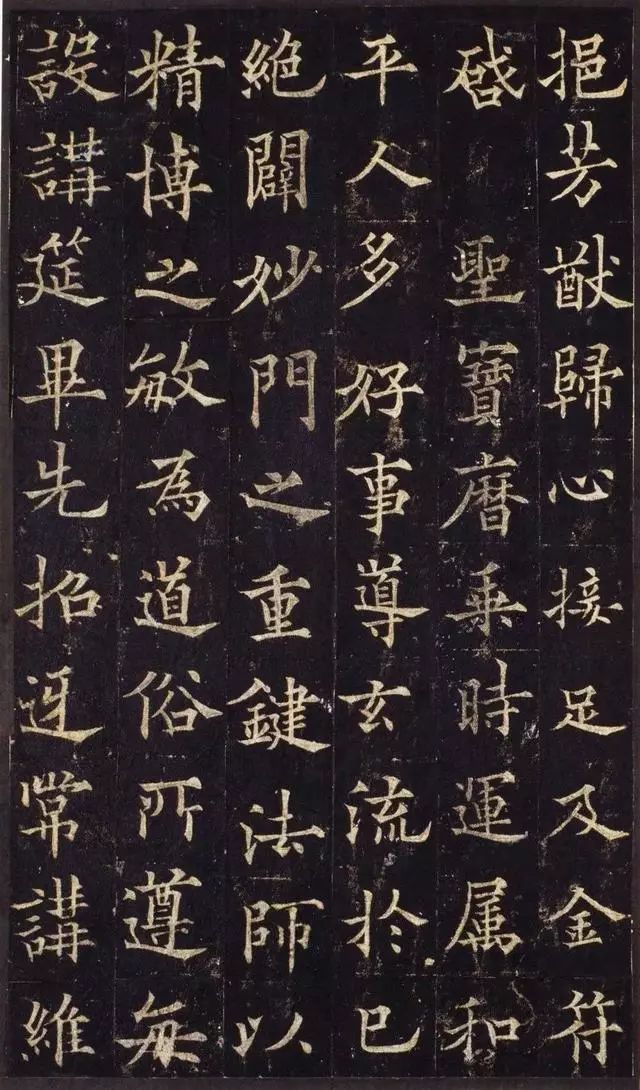 挹芳猷歸心接足及金符
啓聖寶曆乘時運属和
平人多好事導玄流於已
絶闢妙門之重鍵法師以
精博之敏為道俗所遵每
設講筵畢先招迓常講維